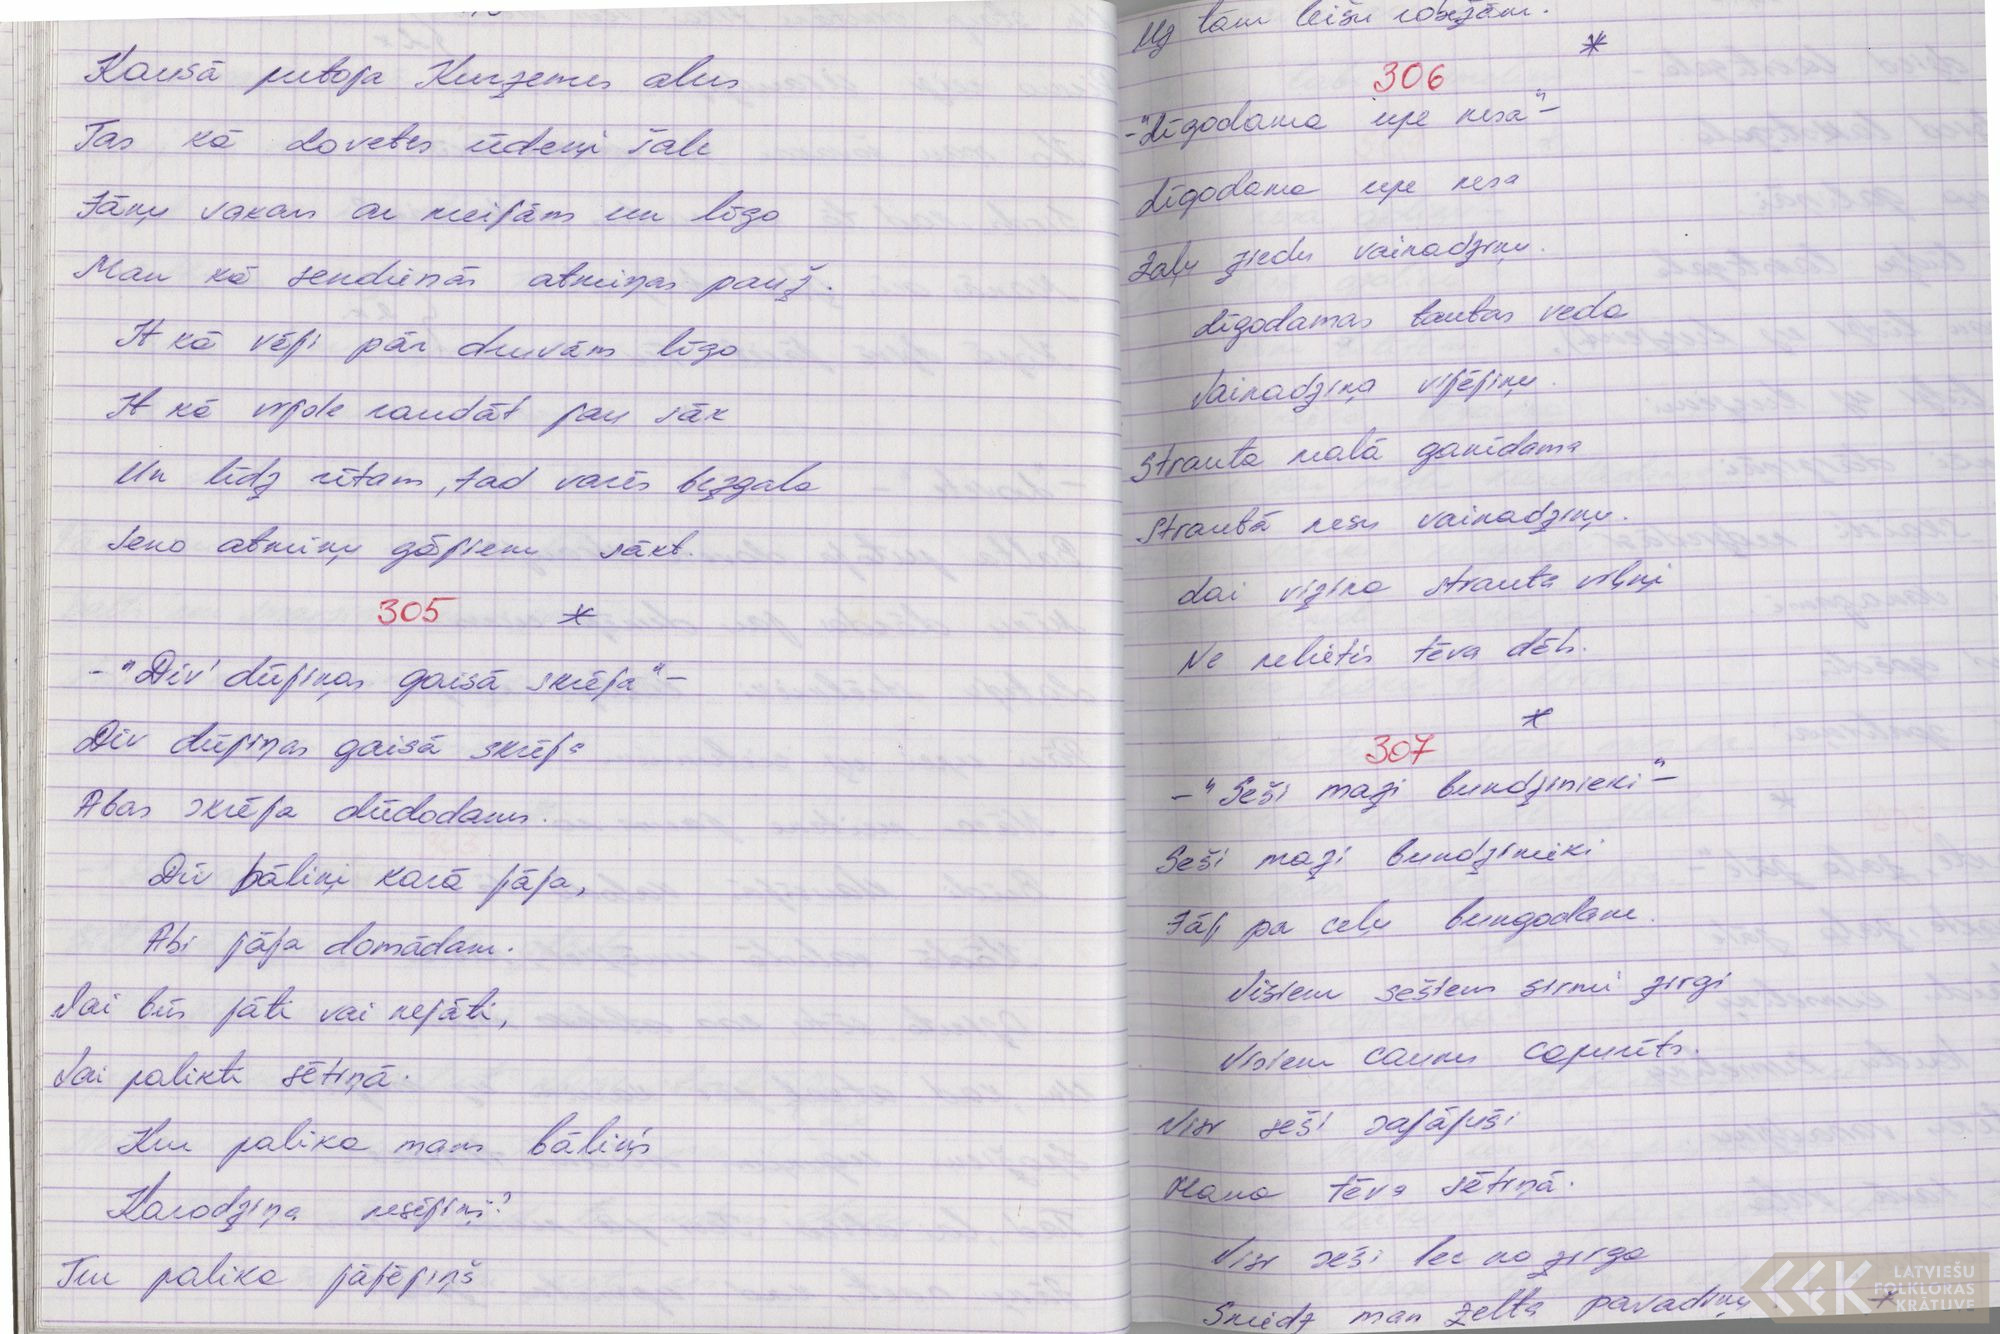 Kausā putoja Kurzemes alus
Tas kā dovetes ūdeņi šalc
Jāņu vakars ar meijām un līgo
Man kā sendienās atmiņas pauž.
It kā vēji pār druvām līgo
It kā vijole raudāt jau sāk
Un līdz rītam, tad varēs bezgala
Seno atmiņu gājienu sākt.
305 *
- "Div' dūjiņas gaisā skrēja" -
Div dūjiņas gaisā skrēja
Abas skrēja dūdodams.
Div bāliņi karā jāja,
Abi jāja domādam.
Vai būs jāti vai nejāti,
Vai palikti sētiņā.
Kur palika mans bāliņš
Karodziņa nesējiņš?
Tur palika jājējiņš
Uz tām leišu robežām.
*
306
- "Līgodama upe nesa" -
Līgodama upe nesa
Zaļu ziedu vainadziņu.
Līgodamas tautas veda
Vainadziņa vijējiņu.
Strauta malā ganīdama
Strautā nesu vainadziņu.
Lai vizina strauta viļņi
Ne nelietis tēva dēls.
*
307
- "Seši mazi bundzinieki" -
Seši mazi bundzinieki
Jāj pa ceļu bungodam.
Visiem sešiem sirmi zirgi
Visiem caunu cepurīts.
Visi seši sajājuši
Mana tēva sētiņā.
Visi seši lec no zirga
Sniedz man zelta pavadiņu. *
LATVIEŠU
FOLKLORAS
KRĀTUVE